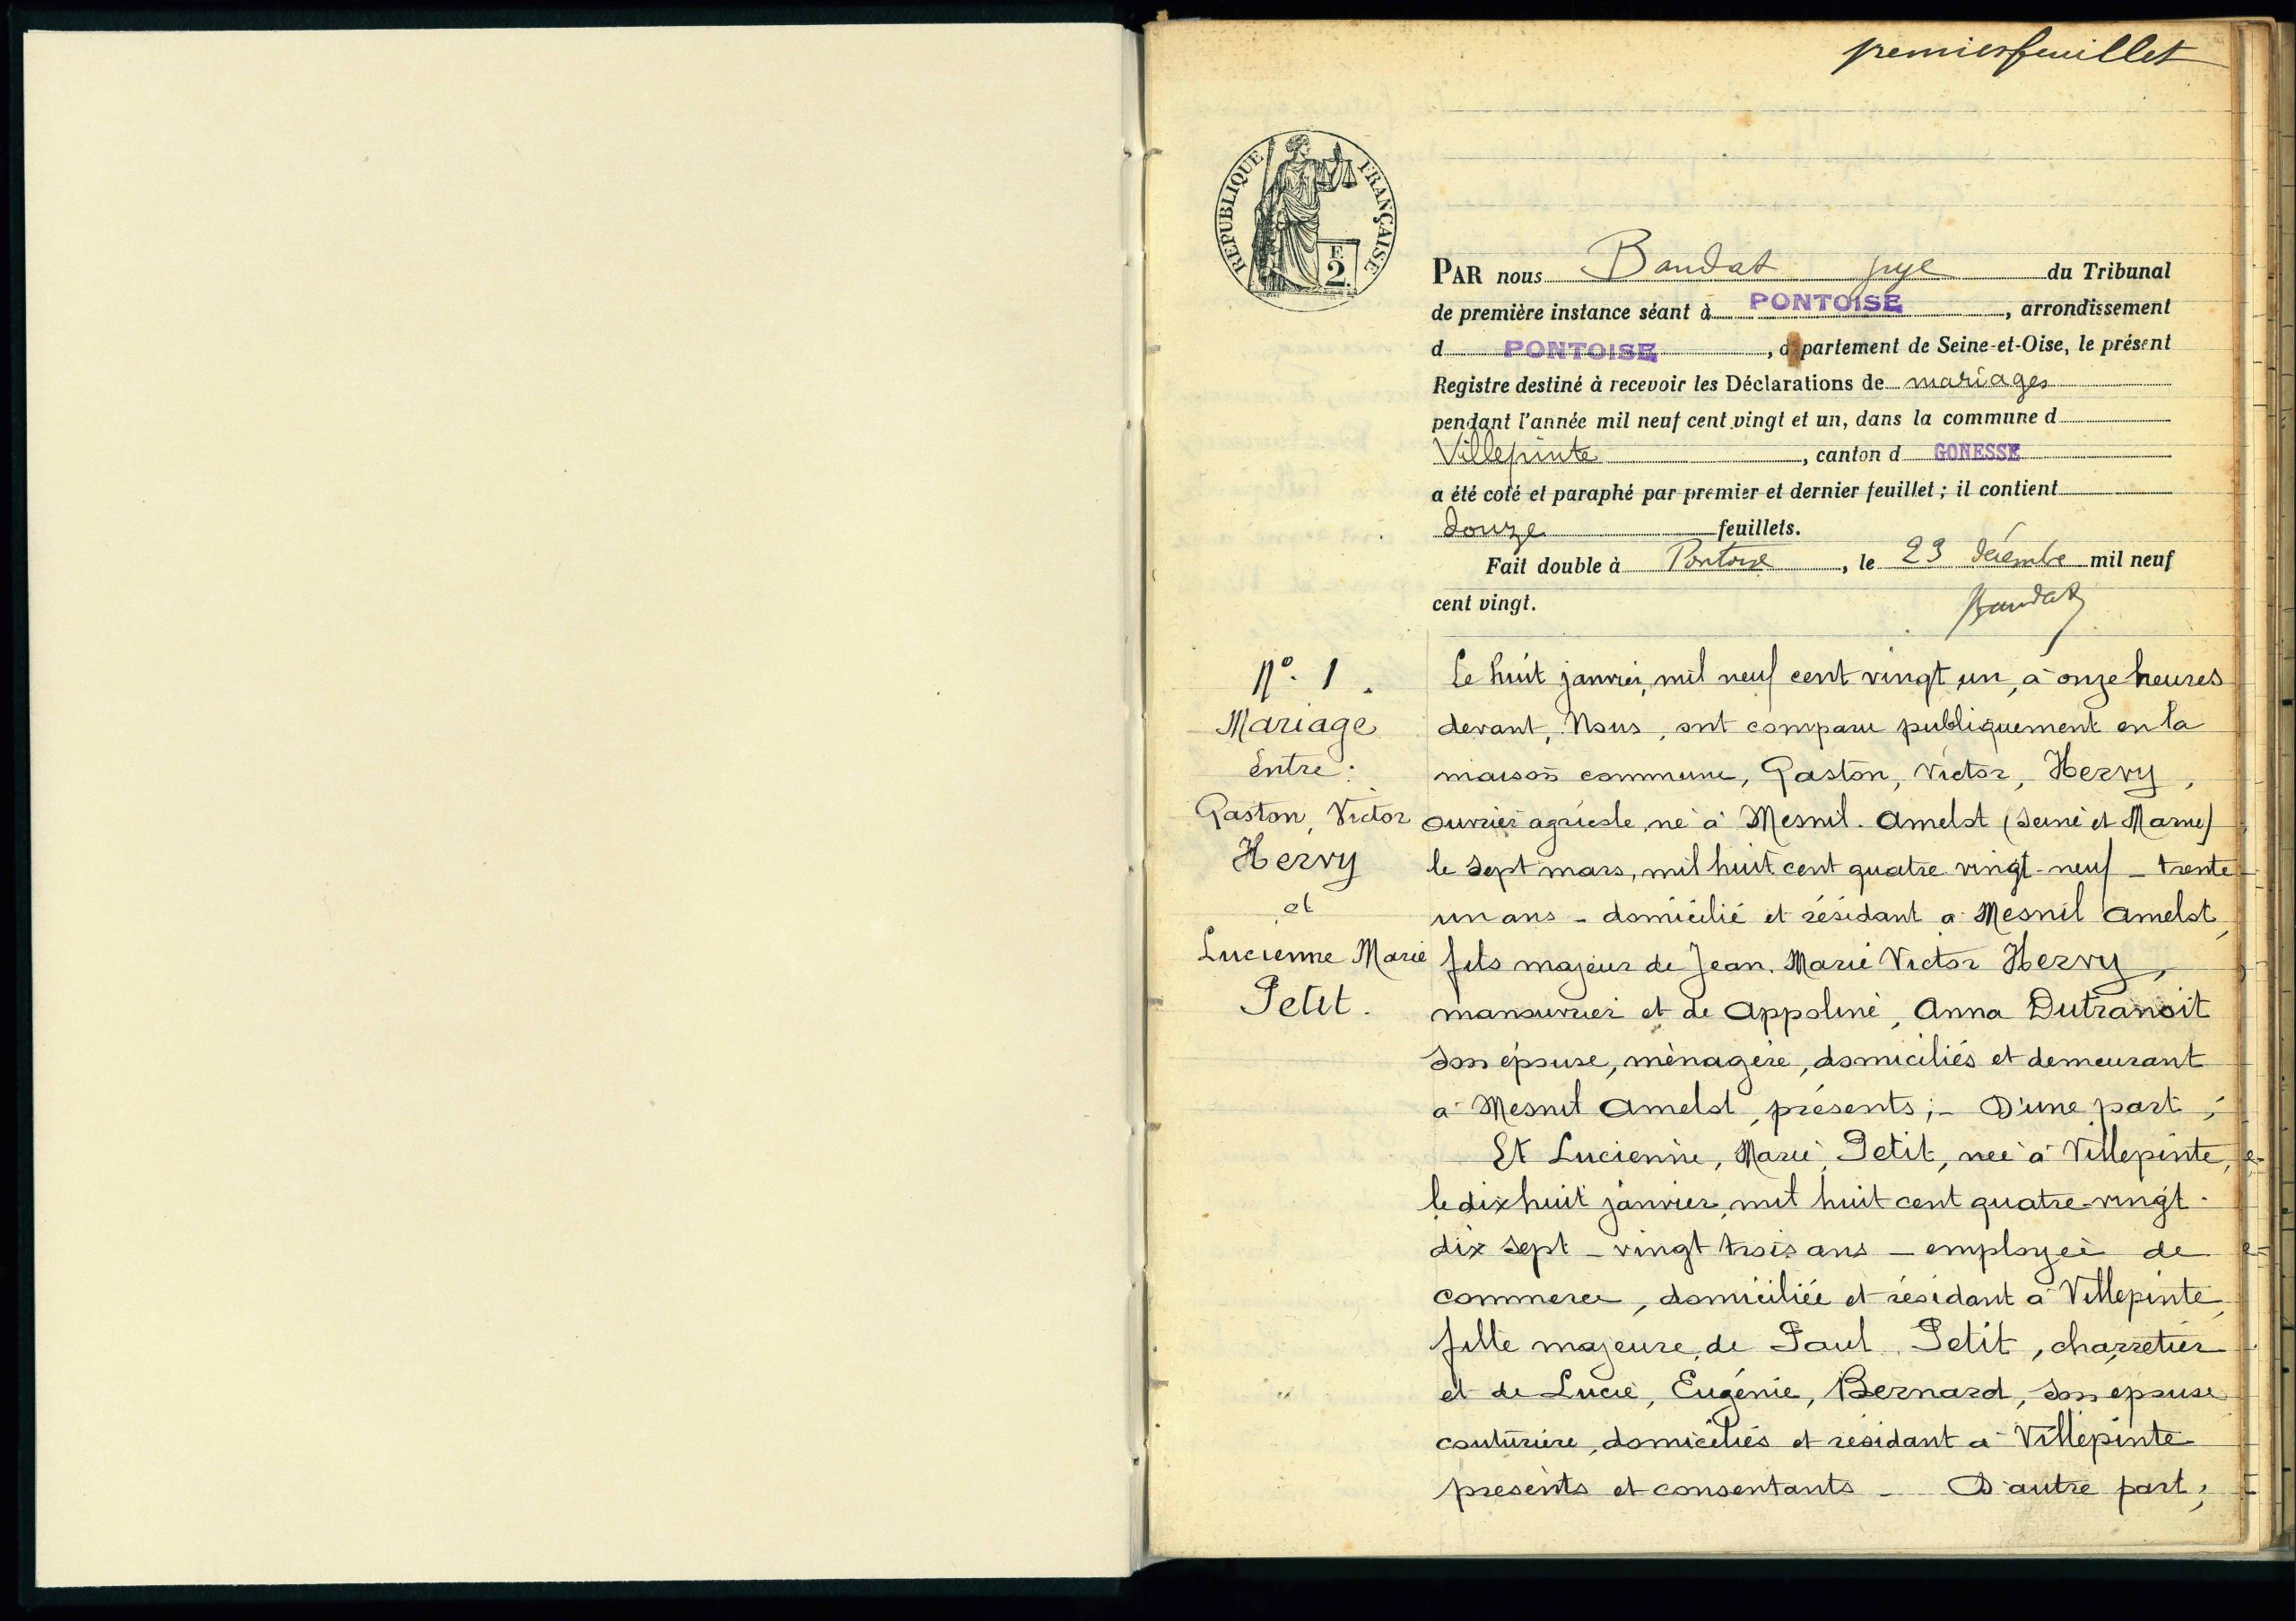 premier feuillet
REPUBLIQUE FRANÇAISE
F.
2.
PAR nous Baudat juge du Tribunal
de première instance séant à PONTOISE, arrondissement
d PONTOISE, département de Seine-et-Oise, le présent
Registre destiné à recevoir les Déclarations de mariages
pendant l'année mil neuf cent vingt et un, dans la commune d
Villepinte, canton d GONESSE
a été coté et paraphé par premier et dernier feuillet ; il contient
douze feuillets.
Fait double à Pontoise, le 23 décembre mil neuf
cent vingt.
Baudat
No. 1.
Mariage
entre :
Gaston, Victor
Hervy
et
Lucienne Marie
Petit.
Le huit janvier, mil neuf cent vingt un, à onze heures
devant, Nous, ont comparu publiquement en la
maison commune, Gaston, Victor, Hervy,
ouvrier agricole, né à Mesnil-Amelot (Seine et Marne)
le sept mars, mil huit cent quatre vingt-neuf - trente
un ans - domicilié et résidant à Mesnil Amelot,
fils majeur de Jean, Marie Victor Hervy,
manouvrier et de Appoline, Anna Dutranoit
son épouse, ménagère, domiciliés et demeurant
à Mesnil Amelot, présents ;- D'une part ;
Et Lucienne, Marie, Petit, née à Villepinte,
le dix huit janvier, mil huit cent quatre-vingt-
dix sept - vingt trois ans - employée de
commerce, domiciliée et résidant à Villepinte,
fille majeure, de Paul, Petit, charretier
et de Lucie, Eugénie, Bernard, son épouse
couturière, domiciliés et résidant à Villepinte
présents et consentants - D'autre part ;